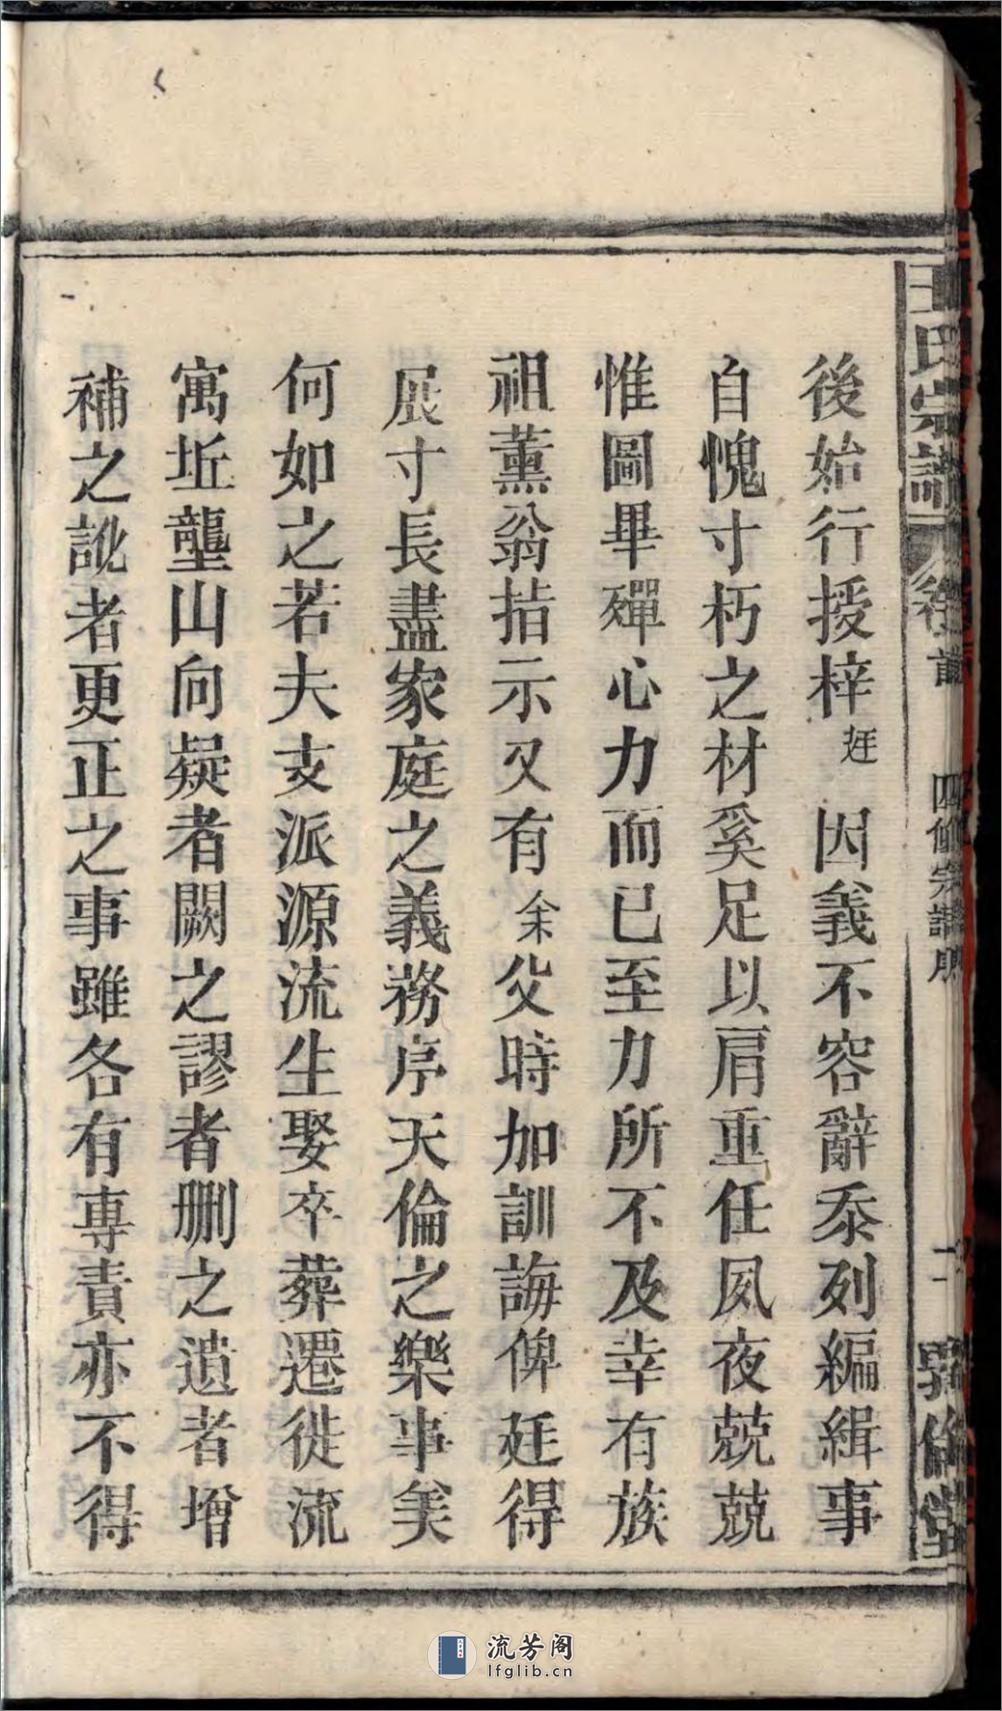 王氏宗譜
卷之首
四修宗譜
二
敦倫堂
後始行授梓廷因義不容辭忝列編緝事
自愧寸朽之材奚足以肩重任夙夜兢兢
惟圖畢殫心力而已至力所不及幸有族
祖薰翁指示又有余父時加訓誨俾廷得
展寸長盡家庭之義務序天倫之樂事美
何如之若夫支派源流生娶卒葬遷徙流
寓坵壟山向疑者闕之謬者刪之遺者增
補之訛者更正之事雖各有專責亦不得
流芳阁
lfglib.cn